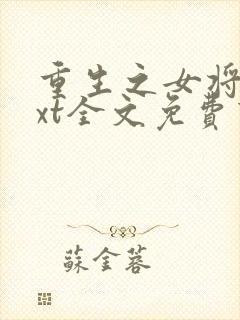 重生之女将
xt全文免费
蘇金蓉